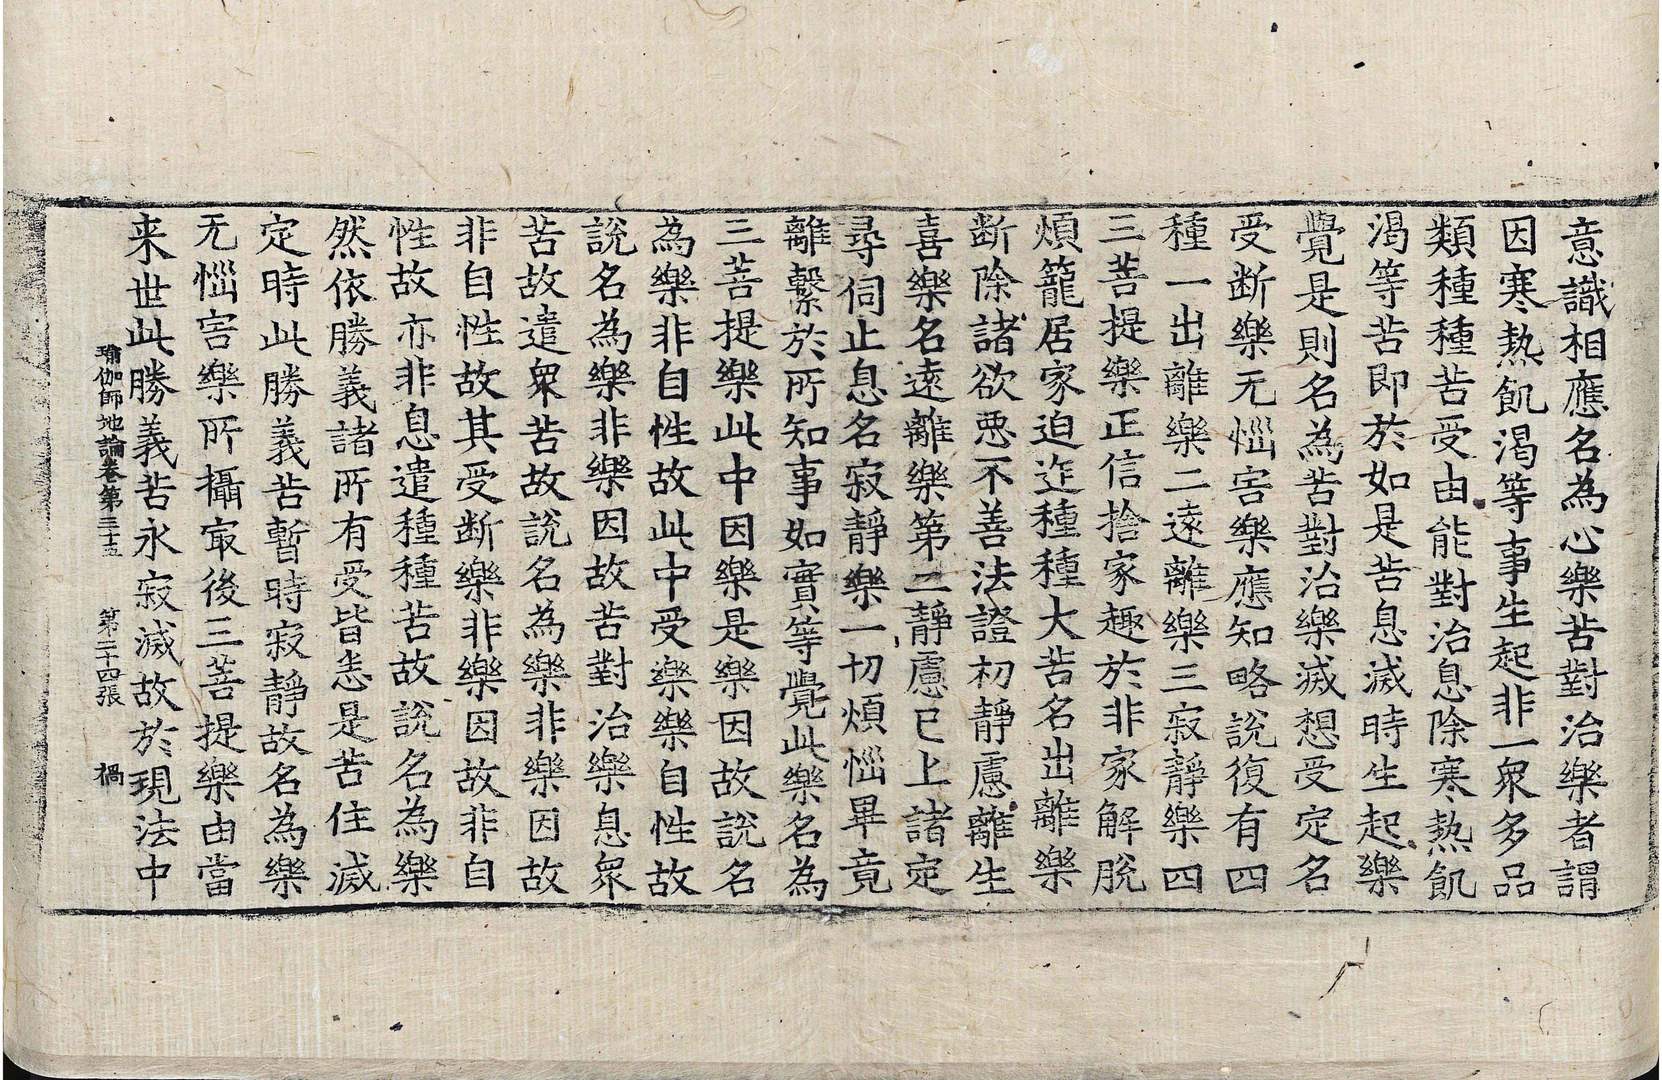 意識相應名為心樂苦對治樂者謂
因寒熱飢渴等事生起非一衆多品
類種種苦受由能對治息除寒熱飢
渴等苦即於如是苦息滅時生起樂
覺是則名為苦對治樂滅想受定名
受断樂无惱害樂應知略說復有四
種一出離樂二遠離樂三寂靜樂四
三菩提樂正信捨家趣於非家解脫
煩籠居家迫迮種種大苦名出離樂
断除諸欲惡不善法證初靜慮離生
喜樂名遠離樂第二靜慮已上諸定
尋伺止息名寂靜樂一切煩惱畢竟
離繫於所知事如實等覺此樂名為
三菩提樂此中因樂是樂因故說名
為樂非自性故此中受樂樂自性故
說名為樂非樂因故苦對治樂息衆
苦故遣衆苦故說名為樂非樂因故
非自性故其受断樂非樂因故非自
性故亦非息遣種種苦故說名為樂
然依勝義諸所有受皆悉是苦住滅
定時此勝義苦暫時寂靜故名為樂
无惱害樂所攝㝡後三菩提樂由當
来世此勝義苦永寂滅故於現法中
瑜伽師地論卷第三十五 第二十四張 禍